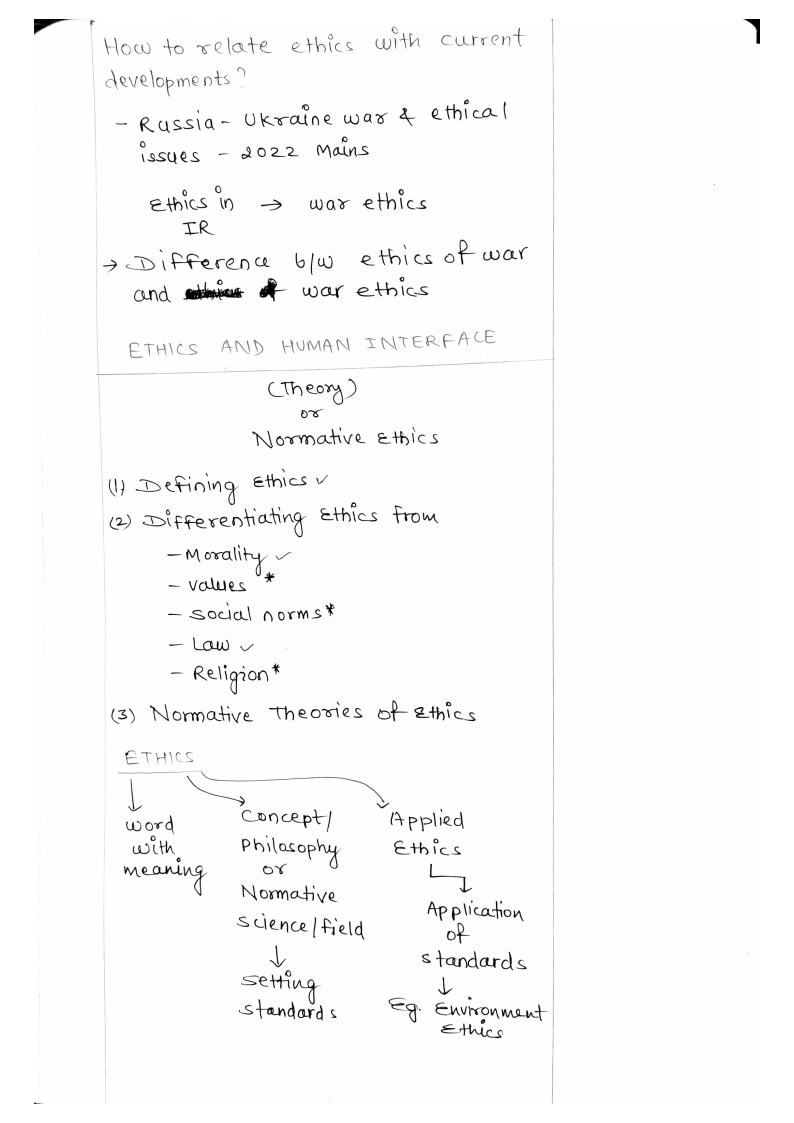 How to relate ethics with current
developments?
- Russia - Ukraine war & ethical
issues - 2022 Mains
Ethics in → war ethics
IR
→ Difference b/w ethics of war
and war ethics
ETHICS AND HUMAN INTERFACE
(Theory)
or
Normative Ethics
(1) Defining Ethics ✓
(2) Differentiating Ethics from
- Morality ✓
- values *
- social norms *
- Law ✓
- Religion *
(3) Normative Theories of Ethics
ETHICS
word
with
meaning
Concept/
Philosophy
or
Normative
science/field
↓
setting
standards
Applied
Ethics
Application
of
standards
↓
Eg. Environment
Ethics